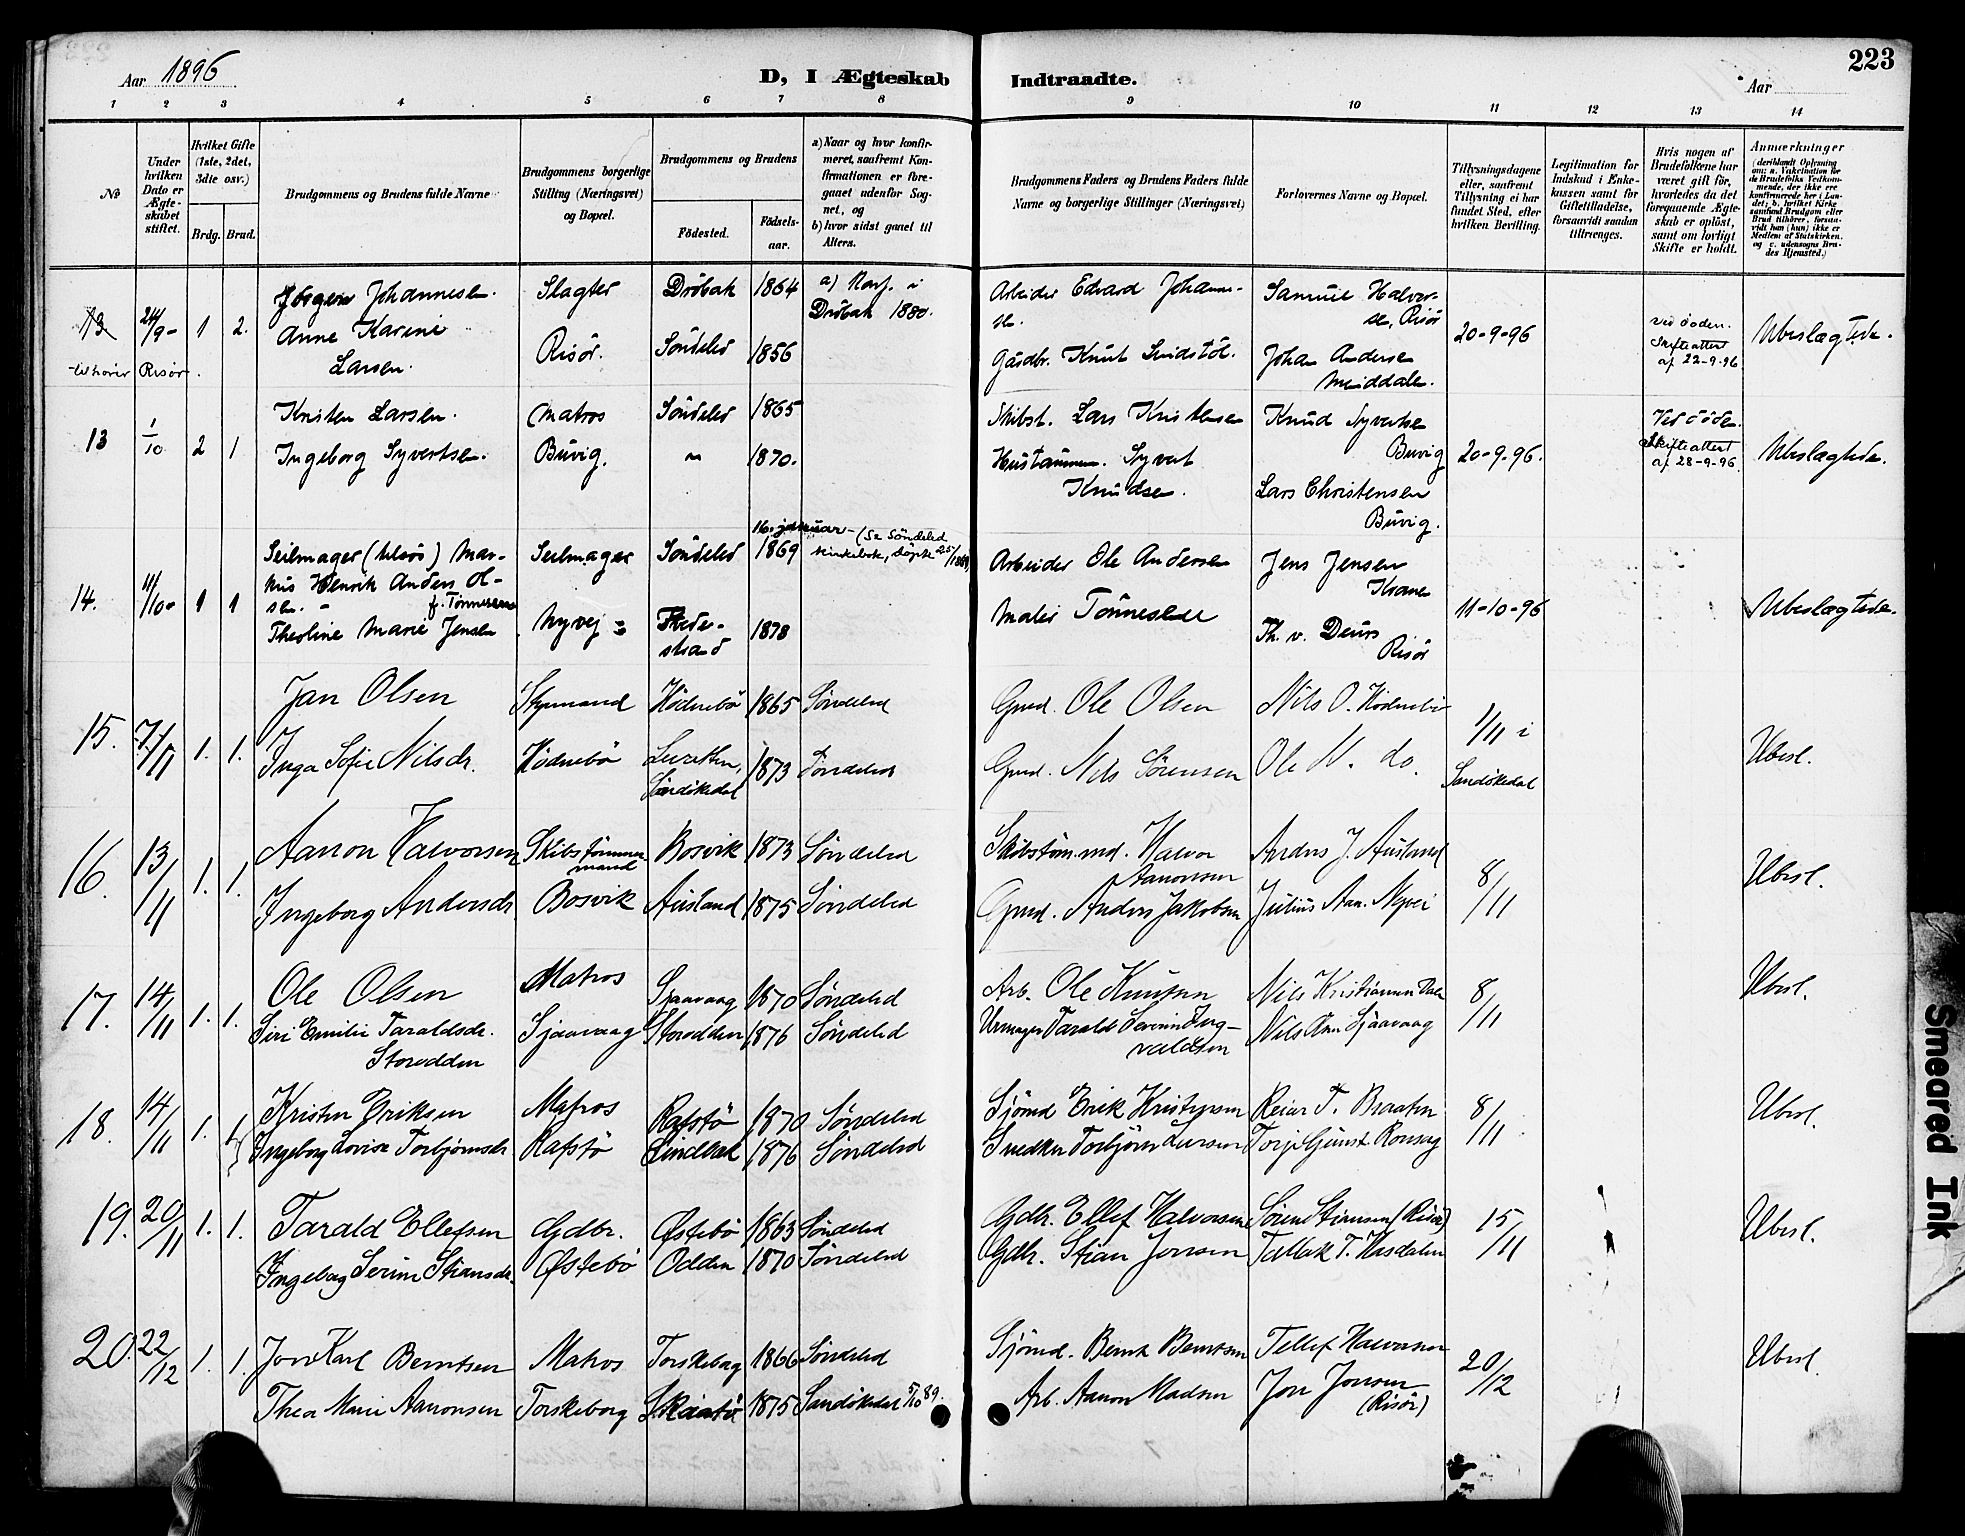 Aar 1896
D, I Ægteskab Indtraadte.
Aar
223
1 2 3 4 5 6 7 8 9 10 11 12 13 14
No
Under hvilken Dato er Ægteskabet stiftet.
Hvilket Gifte (1ste, 2det, 3die osv.)
Brdg. Brud.
Brudgommens og Brudens fulde Navne
Brudgommens borgerlige Stilling (Næringsvei) og Bopæl.
Brudgommens og Brudens
Fødested. Fødsels-aar.
a) Naar og hvor konfirmeret, saafremt Konfirmationen er foregaaet udenfor Sognet, og
b) hvor sidst gaaet til Alters.
Brudgommens Faders og Brudens Faders fulde Navne og borgerlige Stillinger (Næringsvei)
Forlovernes Navne og Bopæl.
Tillysningsdagene eller, saafremt Tillysning ei har fundet Sted, efter hvilken Bevilling.
Legitimation for Indskud i Enkekassen samt for Giftetilladelse, forsaavidt saadan tiltrænges.
Hvis nogen af Brudefolkene har været gift før, hvorledes da det foregaaende Ægteskab er opløst, samt om lovligt Skifte er holdt.
Anmærkninger (deriblandt Oplysning om: a. Vakcination for de Brudefolks Vedkommende, der ikke ere konfirmerede her i Landet; b. hvilket Kirkesamfund Brudgom eller Brud tilhører, forsaavidt han (hun) ikke er Medlem af Statskirken, og c. udensogns Brudes Hjemsted.)
13 24/9- 1 2. Jørgen Johannesen. Slagter Drøbak 1864 a) Konf. i Drøbak 1880. Arbeider Edvard Johannesen. Samuel Halversen, Risør 20-9-96 ved døden. Skifteattest af 22-9-96 Ubeslægtede.
Anne Karine Larsen. Risør. Søndeled 1856 Gaardbr. Knut Johan Andersen
tilhører Risør.
13 1/10 2 1 Kristen Larsen. Matros Søndeled 1865 Skibst. Lars Kristensen Knud Syvertsen Buvig 20-9-96. Ved døden. Skifteattest af 28-9-96 Ubeslægtede.
Ingeborg Syvertsen. Buvig. " 1870. Syvert Knudsen. Lars Christensen Buvig.
14. 11/10- 1 1 Seilmager (tilføs) Markus Henrik Anders Olsen. - Seilmager Søndeled 16. januar 1869 - (Se Søndeled kirkebok, døpte 25/ 1869) Arbeider Ole Andersen Jens Jensen Krane 11-10-96 Ubeslægtede.
f. Tønnesen
Theoline Marie Jensen Nyvej Tvedestrand 1878 Maler Tønnesen Th. v. Deurs Risør
15. 7/11 1. 1. Jan Olsen Styrmand Hødnebø 1865 Søndeled Grmd. Ole Olsen Nils O. Hødnebø 1/11 i Sandøkedal Ubesl.
Inga Sofie Nilsdr. Hødnebø Sandøkedal 1873 Søndeled Grmd. Nils Sørensen Ole N. do.
16. 13/11 1. 1. Aanon Halvorsen Skibstømmermand Bosvik 1873 Søndeled Skibstøm.md. Halvor Aanonsen Anders J. Ausland 8/11 Ubesl.
Ingeborg Andersdr Bosvik Ausland 1875 Søndeled Grmd. Anders Jakobsen Julius Aan. Nyvei
17. 14/11 1. 1. Ole Olsen Matros Sjaavaag 1870 Søndeled Arb. Ole Knutsen Nils Kristiansen Dale 8/11 Ubesl.
Siri Emilie Taraldsdr. Storodden Sjaavaag Storodden 1876 Søndeled Urmager Tarald Severin Ingvaldsen Nils Knu Sjaavaag
18. 14/11 1. 1. Kristen Eriksen Matros Rafstø 1870 Søndeled Sjømd Erik Kristensen Reiar T. Braaten 8/11 Ubesl.
Ingeborg Lovise Torbjørnsdr Rafstø Lindbak 1876 Søndeled Snedker Torbjørn Larsen Torje Gunst. Ronsag
19. 20/11 1. 1. Tarald Ellefsen Gdbr. Østebø 1863 Søndeled Gdbr. Ellef Halvorsen Søren Stiansen (Risør) 15/11 Ubesl.
Ingeborg Serine Stiansdr. Østebø Odden 1870 Søndeled Gdbr. Stian Jonsen Tallak T. Hasdalen
20. 22/12 1. 1. Jon Karl Berntsen Matros Torskeborg 1866 Søndeled Sjømd. Bernt Berntsen Tellef Halvorsen 20/12 Ubesl.
Thea Marie Aanonsen Torskeborg Skaatø 1875 Sandøkedal 5/10 89. Arb. Aanon Madsen Jon Jonsen (Risør)
Smeared Ink